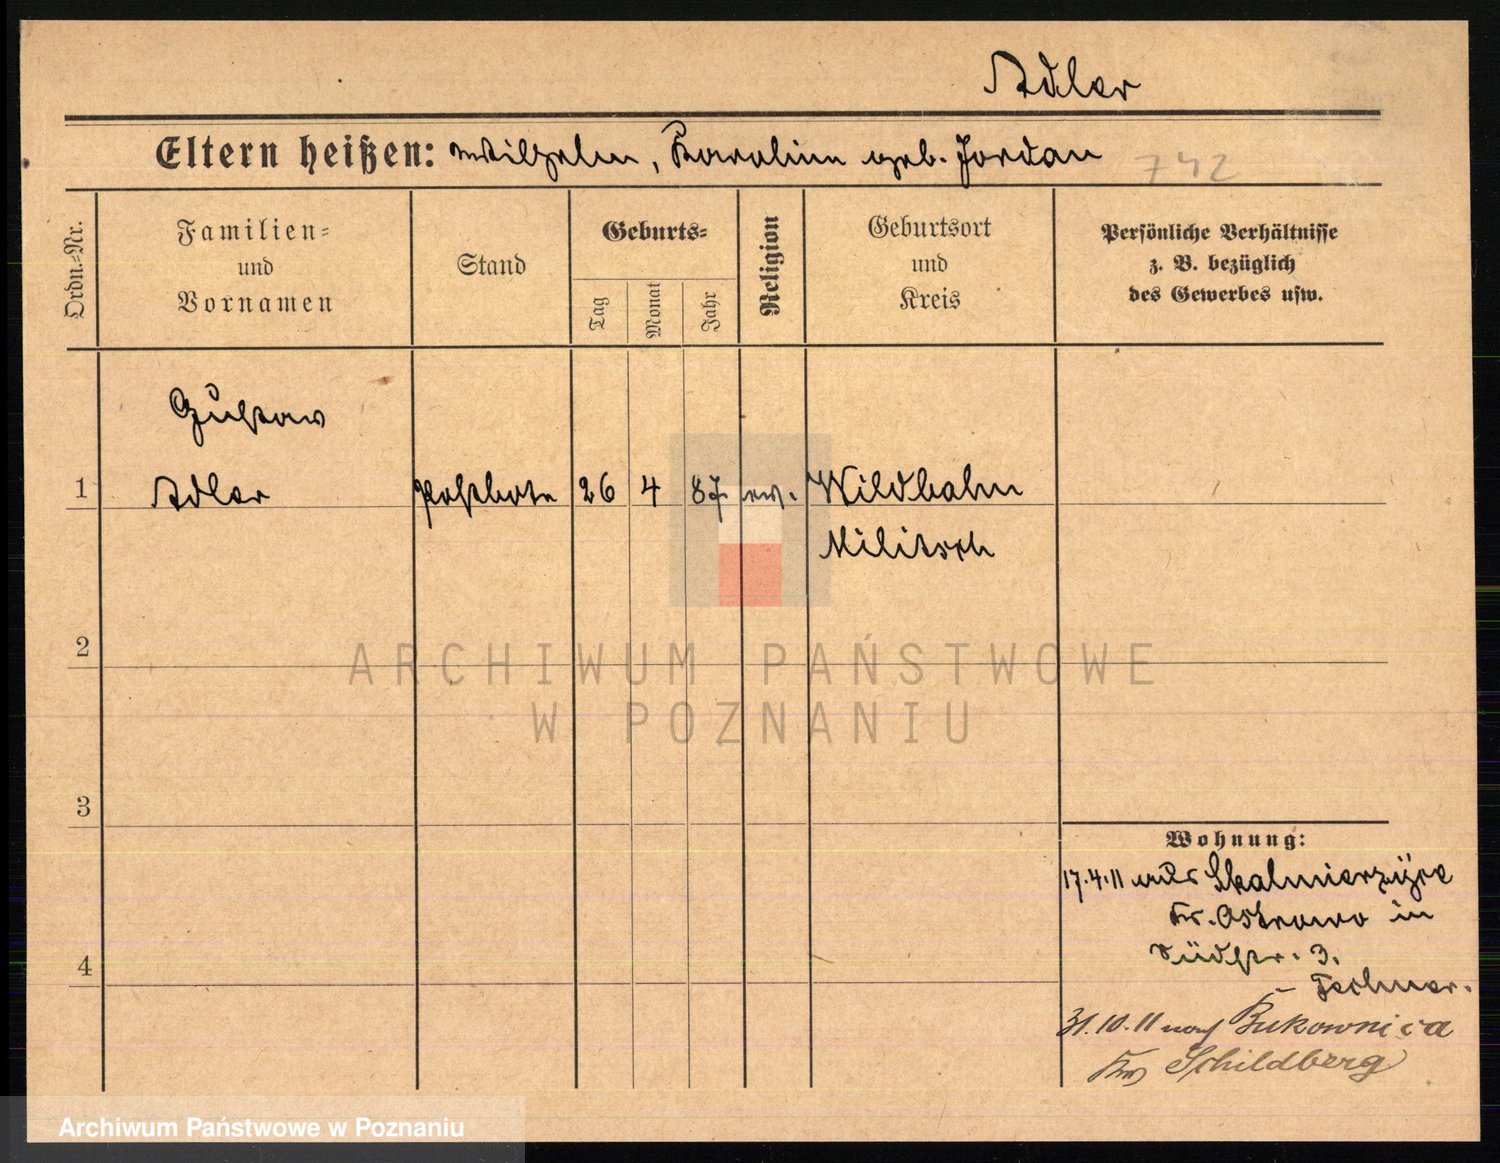 Adler
Eltern heißen: Wilhelm, Karoline geb. Jordan
742
Ordn.-Nr.
Familien-
und
Vornamen
Stand
Geburts-
Tag
Monat
Jahr
Religion
Geburtsort
und
Kreis
Persönliche Verhältnisse
z. B. bezüglich
des Gewerbes usw.
Gustav
1 Adler Postbote 26 4 87 ev. Wildbahn
Militsch
2
ARCHIWUM PAŃSTWOWE
W POZNANIU
3
Wohnung:
17.4.11 aus Skalmierzyce
Kr. Ostrowo in
Südstr. 3.
4
31.10.11 nach Bukownica
Krs Schildberg
Archiwum Państwowe w Poznaniu